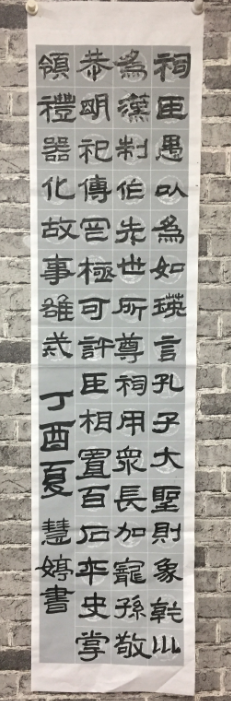 祠臣愚以為如瑛言孔子大聖則象乾川
為漢制作先世所尊祠用眾長加寵孫敬
恭明祀傳罔極可許臣相置百石卒史掌
領禮器化故事 丁酉夏 慧婷書